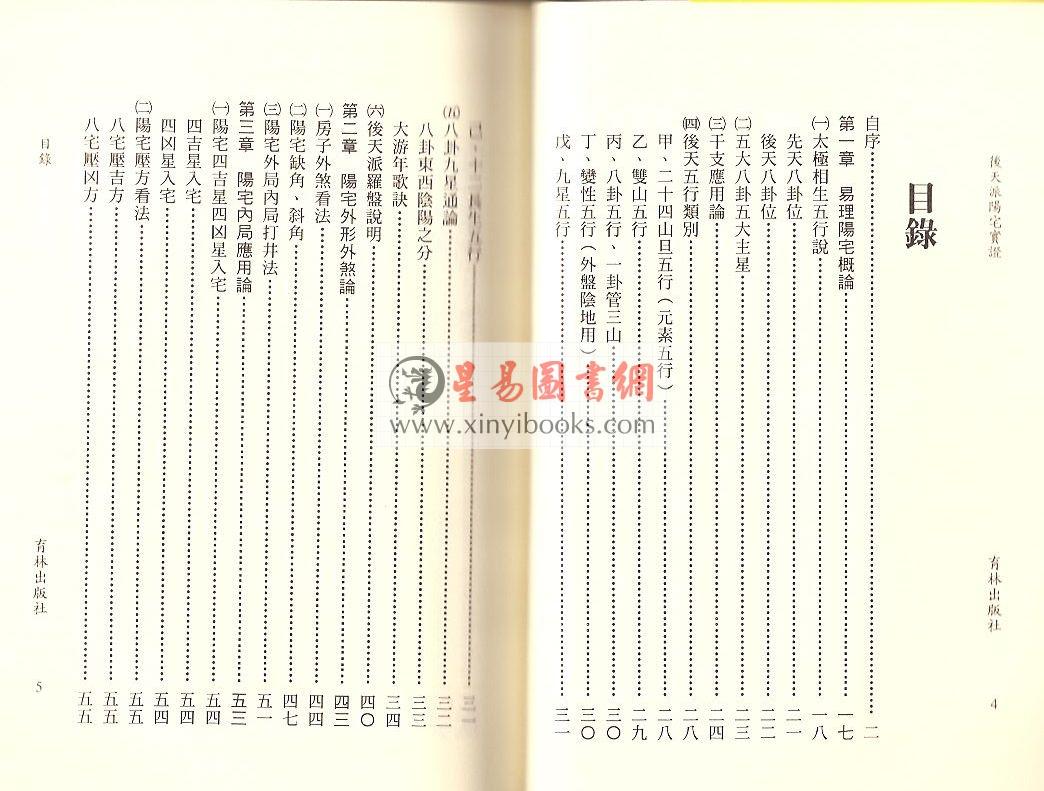 後天派陽宅實證
育林出版社
4
目錄
自序……二
第一章　易理陽宅概論……一七
㈠太極相生五行說……一八
先天八卦位……二一
後天八卦位……二二
㈡五大八卦五大主星……二三
㈢干支應用論……二四
㈣後天五行類別……二八
甲、二十四山旦五行（元素五行）……二八
乙、雙山五行……二九
丙、八卦五行、一卦管三山……三〇
丁、變性五行（外盤陰地用）……三〇
戊、九星五行……三一
己、十二長生九行……三二
㈤八卦九星通論……三二
八卦東西陰陽之分……三三
大游年歌訣……三四
㈥後天派羅盤說明……四〇
第二章　陽宅外形外煞論……四三
㈠房子外煞看法……四四
㈡陽宅缺角、斜角……四七
㈢陽宅外局內局打井法……五一
第三章　陽宅內局應用論……五三
㈠陽宅四吉星四凶星入宅……五四
四吉星入宅……五四
四凶星入宅……五四
㈡陽宅壓方看法……五五
八宅壓吉方……五五
八宅壓凶方……五五
目錄
育林出版社
5
星易圖書網
www.xinyibooks.com